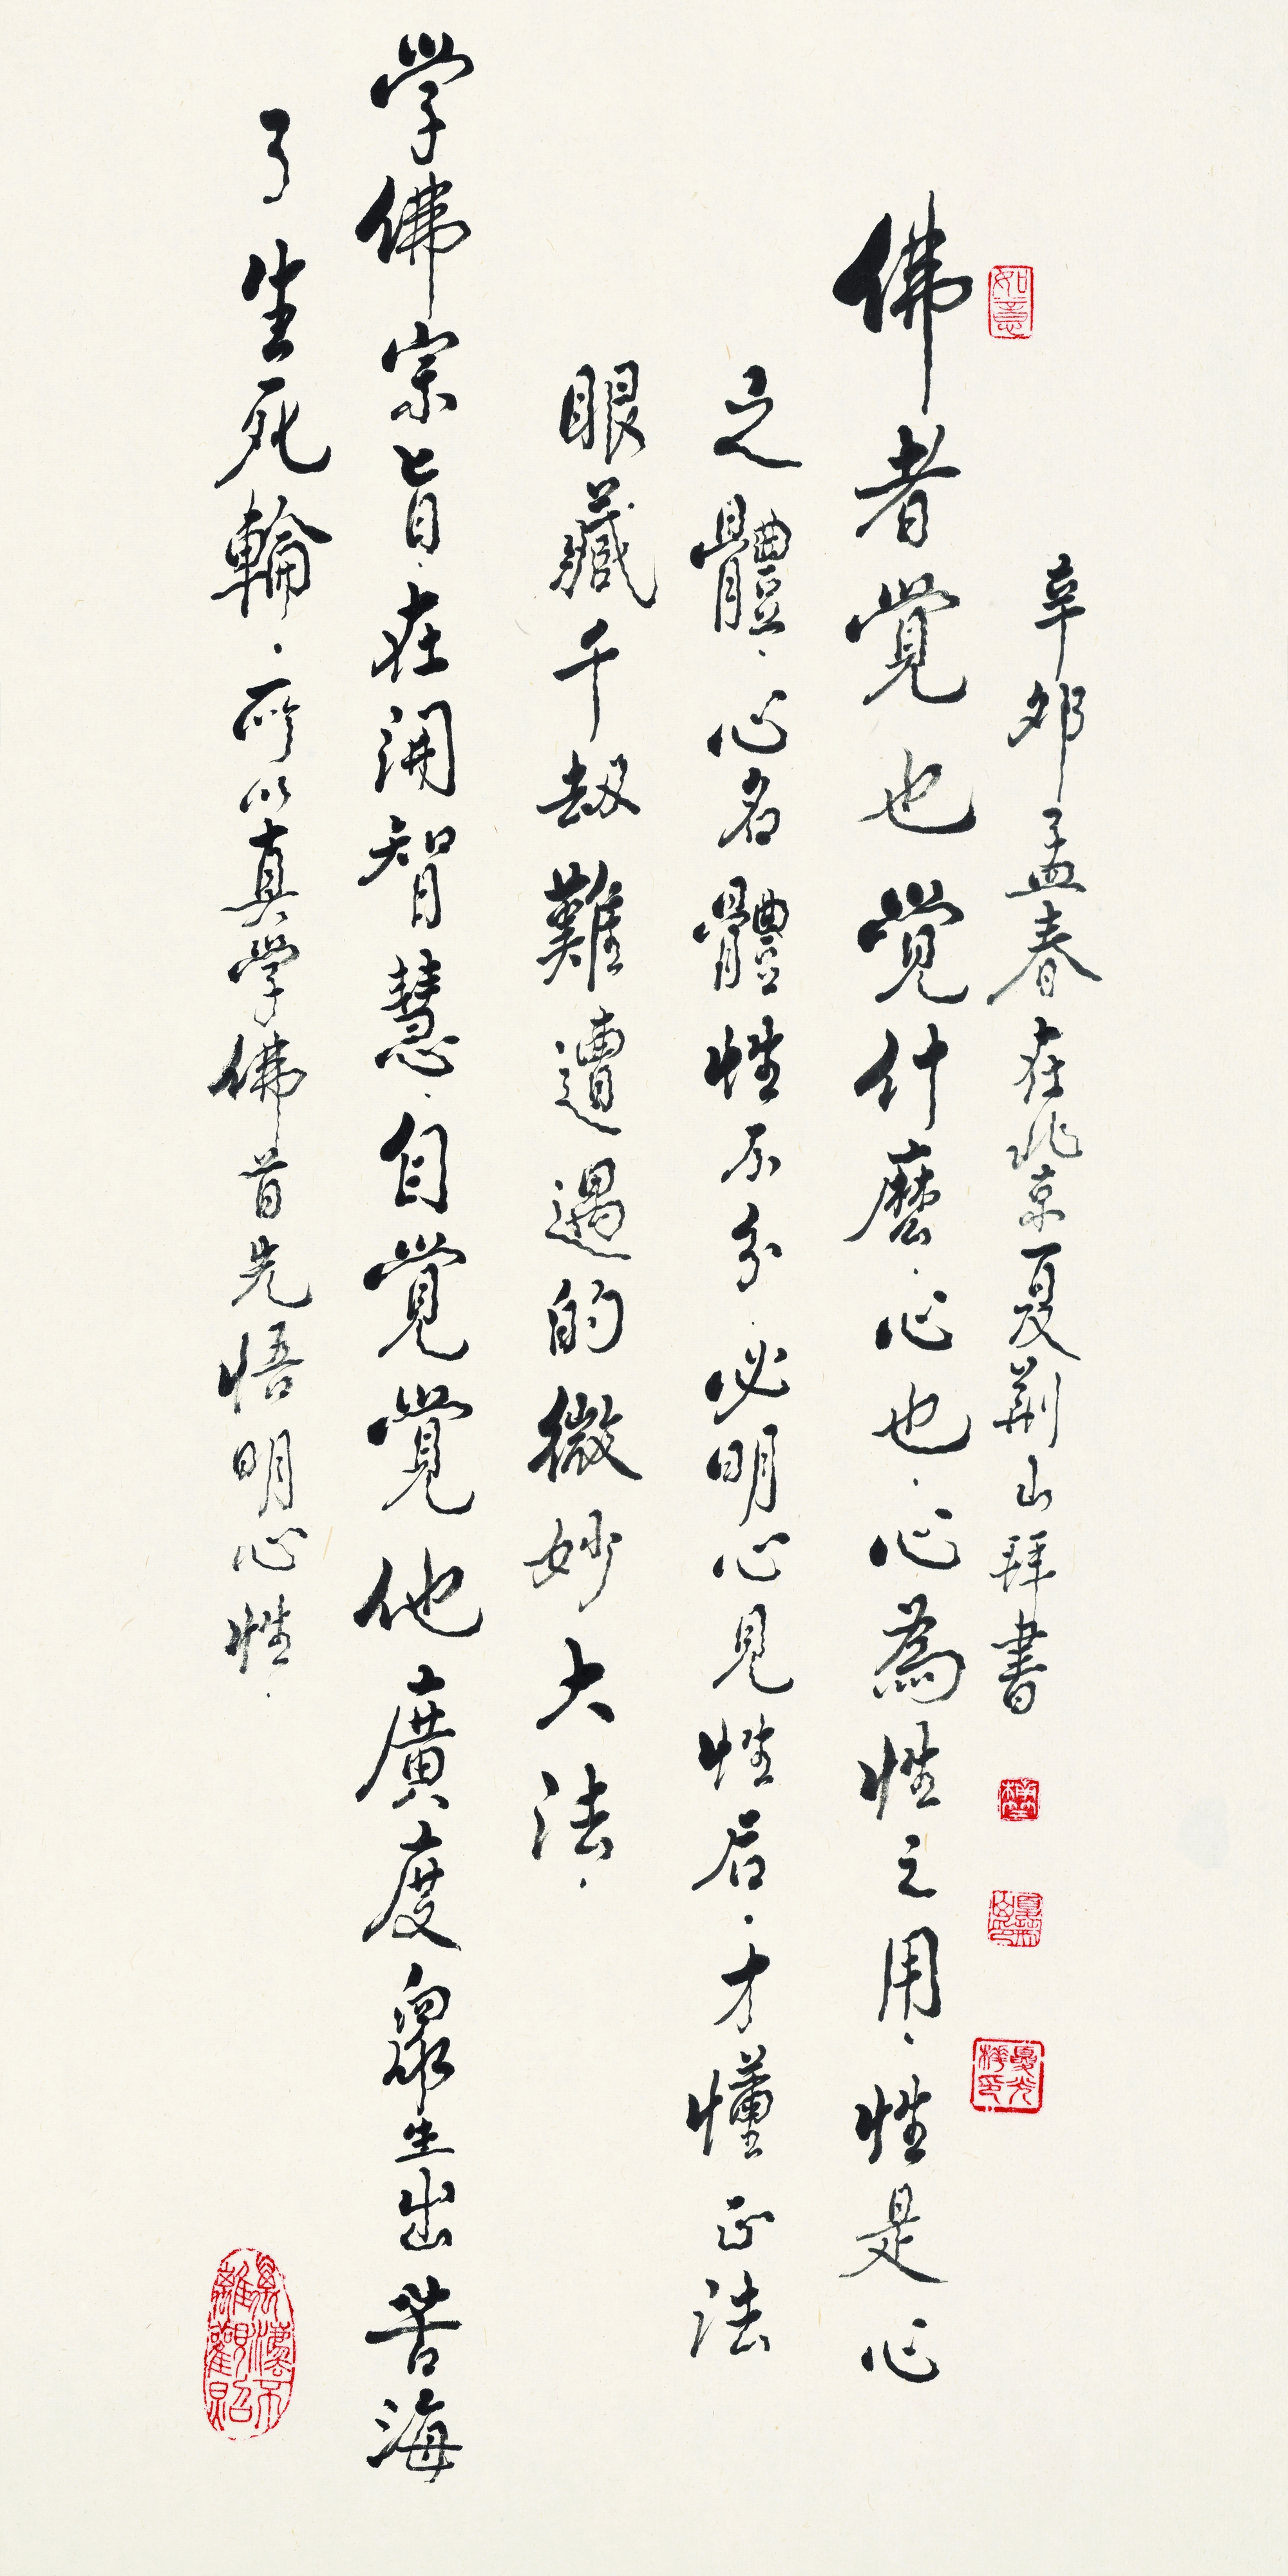 佛者覺也覺什麼·心也·心為性之用·性是心
之體·心名體性不分·必明心見性后·才懂正法
眼藏千劫難遭遇的微妙大法·
学佛宗旨·在開智慧·自覺覺他廣度眾生出苦海
了生死輪·所以真学佛首先悟明心性·
辛卯孟春在北京夏荆山拜書
如意